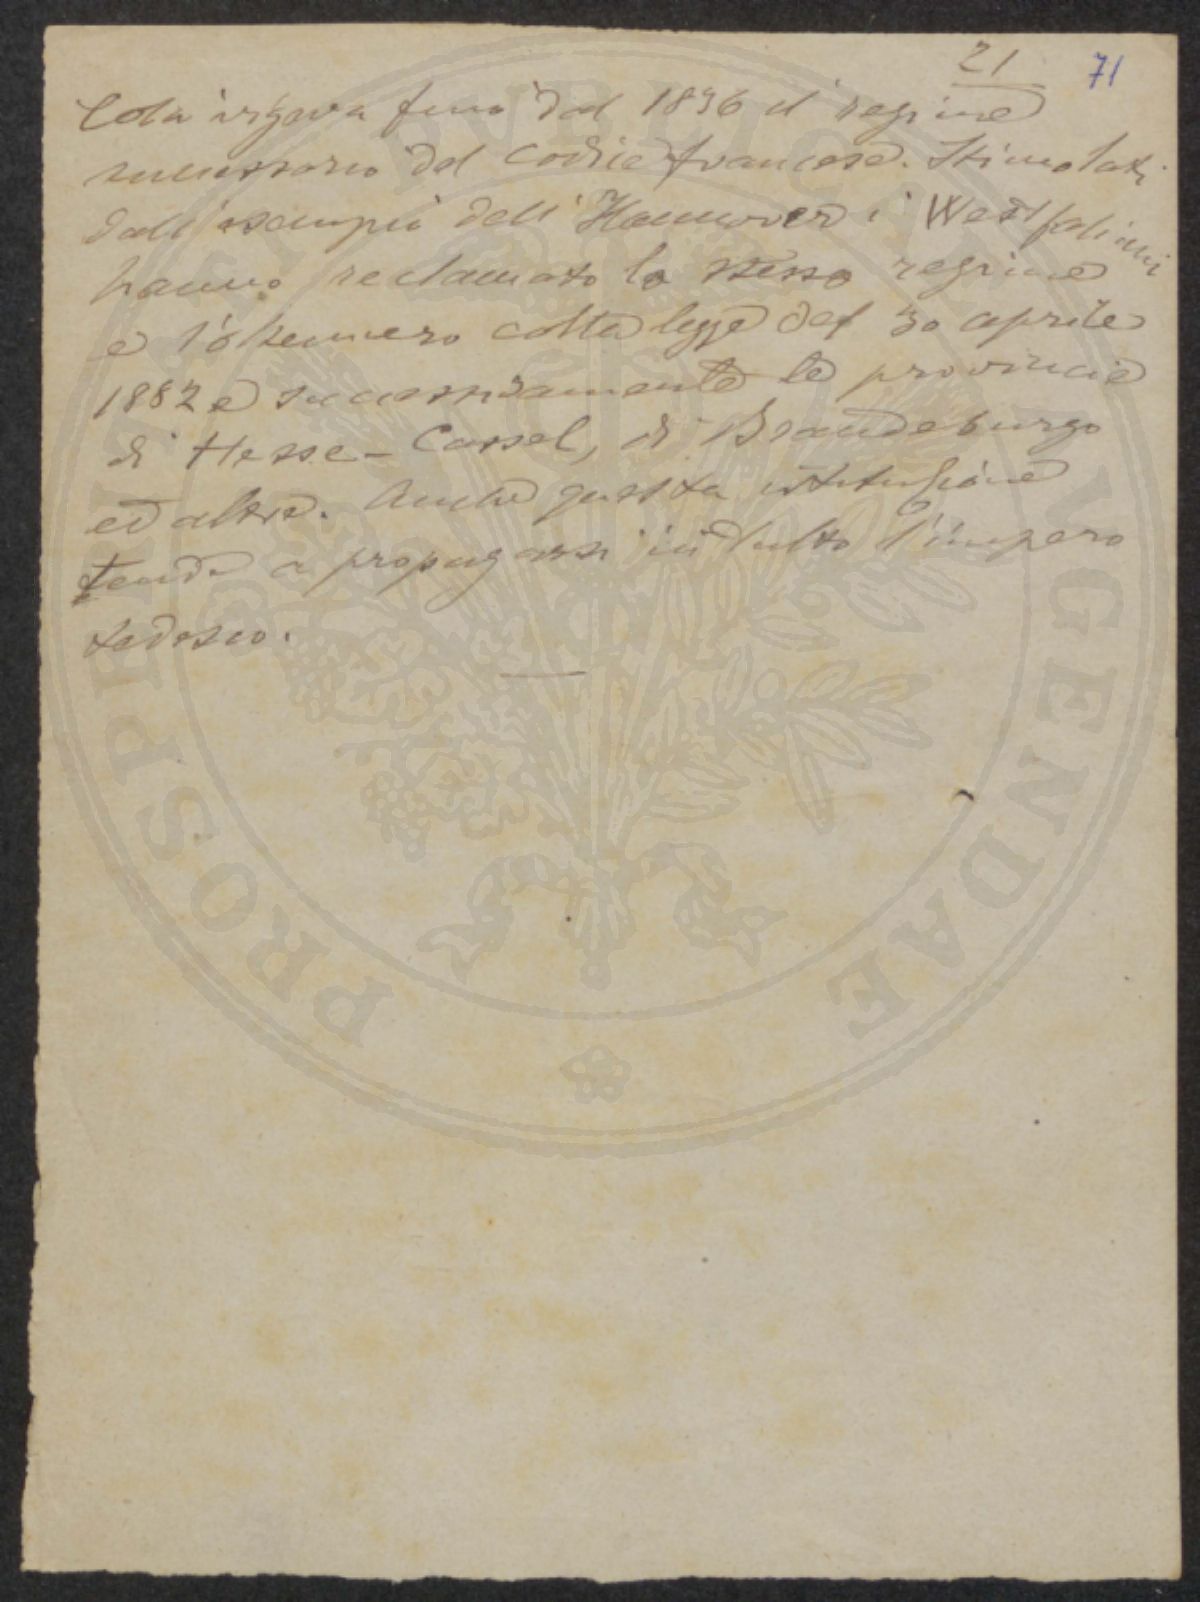 21 71
Colà vigeva fino dal 1836 il regime
successorio del codice francese. Stimolati
dall'esempio dell'Hannover i Westfaliani
hanno reclamato lo stesso regime
e l'ottennero colla legge del 30 aprile
1882 e successivamente le provincie
di Hesse-Cassel, di Brandeburgo
ed altre. Anche questa istituzione
tende a propagarsi in tutto l'impero
tedesco.
PROSPERITATI PVBLICAE AVGENDAE